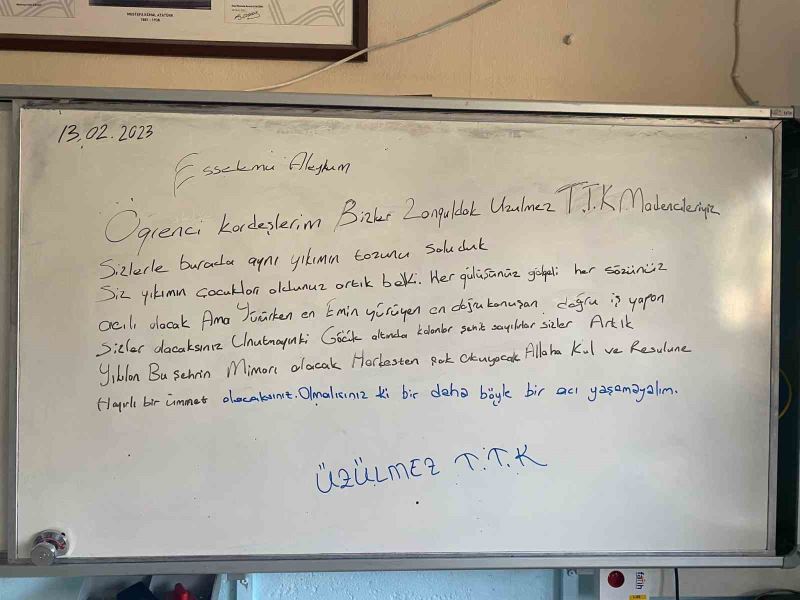 MUSTAFA KEMAL ATATÜRK
1881 - 1938
13.02.2023
Esselemü Aleyküm
Öğrenci kardeşlerim Bizler Zonguldak Uzulmez T.T.K Madencileriyiz
Sizlerle burada aynı yıkımın tozunu soluduk
Siz yıkımın çocukları oldunuz artık belki. Her gülüşünüz gölgeli her sözünüz
acılı olacak Ama Yürürken en Emin yürüyen en doğru konuşan doğru iş yapan
Sizler olacaksınız Unutmayınki Göçük altında kalanlar şehit sayılırlar sizler Artık
Yıkılan Bu şehrin Mimarı olacak Herkesten çok okuyacak Allaha Kul ve Resulune
Hayırlı bir ümmet olacaksınız. Olmalısınız ki bir daha böyle bir acı yaşamayalım.
ÜZÜLMEZ T.T.K
fatih